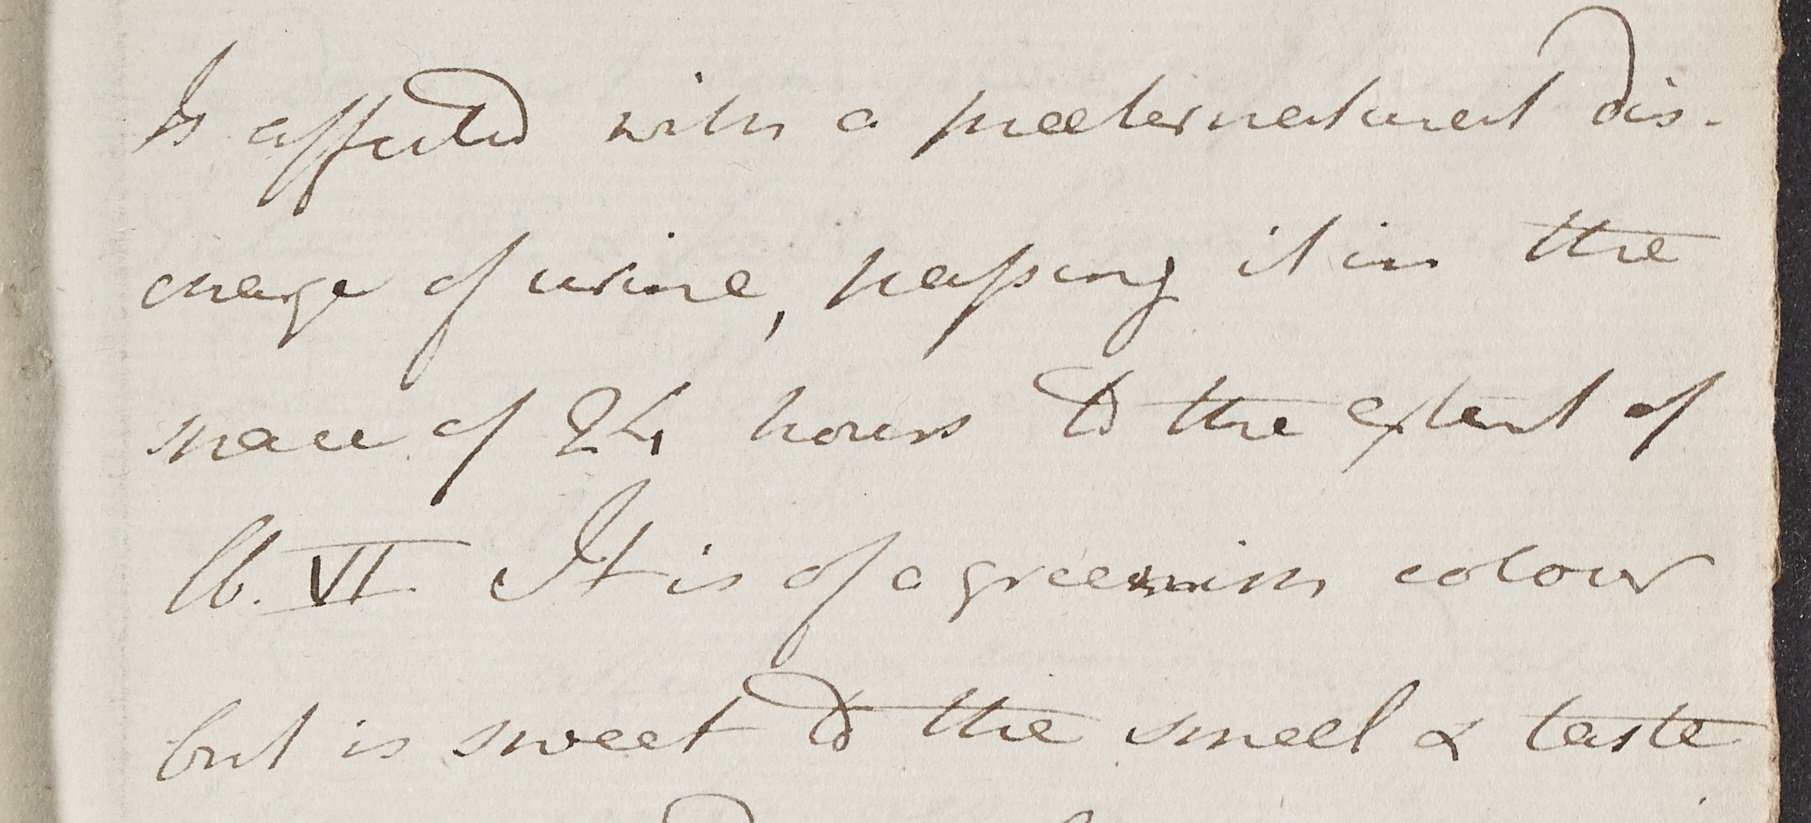 Is affected with a preeternatural dis-
charge of urine, passing it in the
space of 24 hours to the extent of
lb. VI. It is of a greenish colour
but is sweet to the smell & taste